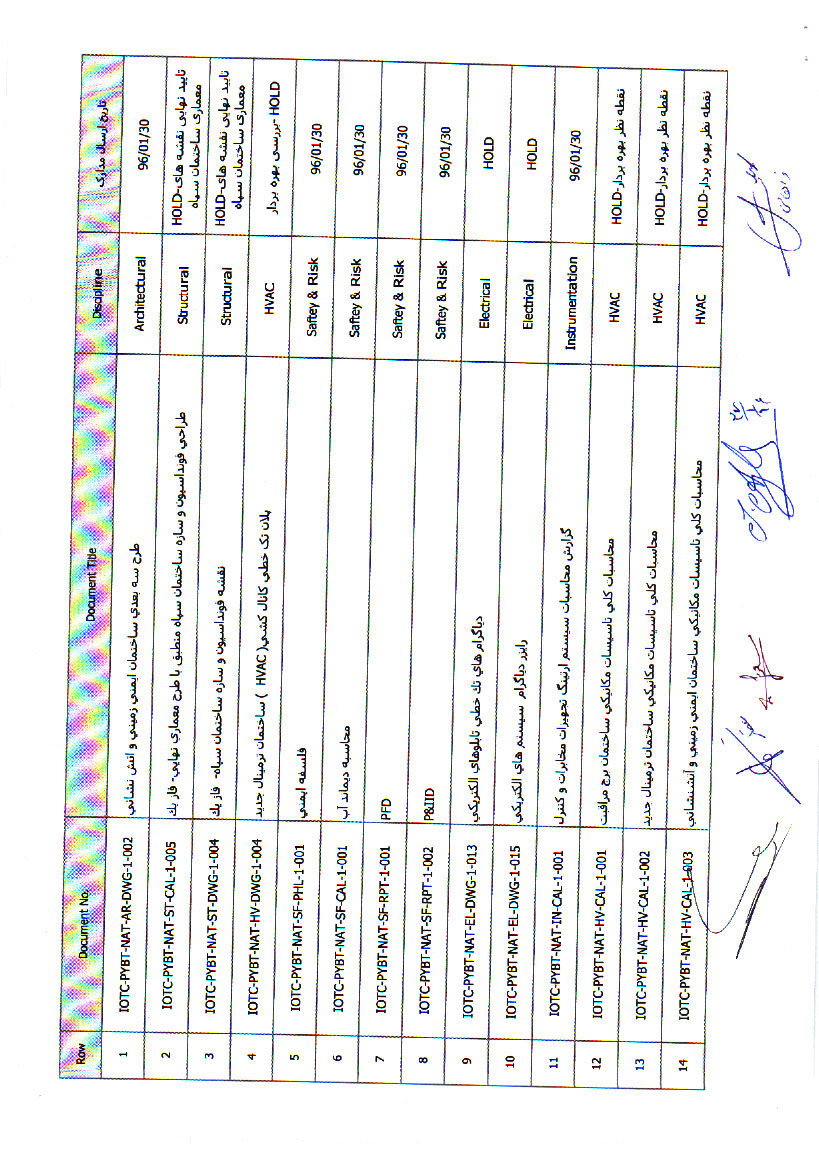 Row Document No. Document Title Discipline تاریخ ارسال مدارک
1 IOTC-PYBT-NAT-AR-DWG-1-002 طرح سه بعدي ساختمان ايمني زميني و آتش نشاني Architectural 96/01/30
2 IOTC-PYBT-NAT-ST-CAL-1-005 طراحي فونداسيون و سازه ساختمان سپاه منطبق با طرح معماري نهايي- فاز يك Structural HOLD-تایید نهایی نقشه های معماری ساختمان سپاه
3 IOTC-PYBT-NAT-ST-DWG-1-004 نقشه فونداسيون و سازه ساختمان سپاه- فاز يك Structural HOLD-تایید نهایی نقشه های معماری ساختمان سپاه
4 IOTC-PYBT-NAT-HV-DWG-1-004 پلان تک خطي كانال كشي( HVAC ) ساختمان ترمينال جديد HVAC HOLD -بررسی بهره بردار
5 IOTC-PYBT-NAT-SF-PHL-1-001 فلسفه ايمني Saftey & Risk 96/01/30
6 IOTC-PYBT-NAT-SF-CAL-1-001 محاسبه ديماند آب Saftey & Risk 96/01/30
7 IOTC-PYBT-NAT-SF-RPT-1-001 PFD Saftey & Risk 96/01/30
8 IOTC-PYBT-NAT-SF-RPT-1-002 P&IID Saftey & Risk 96/01/30
9 IOTC-PYBT-NAT-EL-DWG-1-013 دياگرام هاي تك خطي تابلوهاي الكتريكي Electrical HOLD
10 IOTC-PYBT-NAT-EL-DWG-1-015 رايزر دياگرام سيستم هاي الكتريكي Electrical HOLD
11 IOTC-PYBT-NAT-IN-CAL-1-001 گزارش محاسبات سيستم ارتينگ تجهيزات مخابرات و كنترل Instrumentation 96/01/30
12 IOTC-PYBT-NAT-HV-CAL-1-001 محاسبات كلي تاسيسات مكانيكي ساختمان برج مراقبت HVAC HOLD-نقطه نظر بهره بردار
13 IOTC-PYBT-NAT-HV-CAL-1-002 محاسبات كلي تاسيسات مكانيكي ساختمان ترمينال جديد HVAC HOLD-نقطه نظر بهره بردار
14 IOTC-PYBT-NAT-HV-CAL-1-003 محاسبات كلي تاسيسات مكانيكي ساختمان ايمني زميني و آتشنشاني HVAC HOLD-نقطه نظر بهره بردار